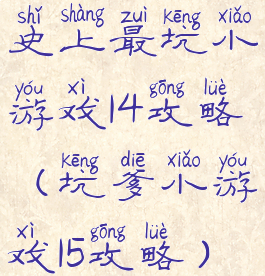 shǐ shàng zuì kēng xiǎo
史上最坑小
yóu xì gōng lüè
游戏14攻略
kēng diē xiǎo yóu
（坑爹小游
xì gōng lüè
戏15攻略）